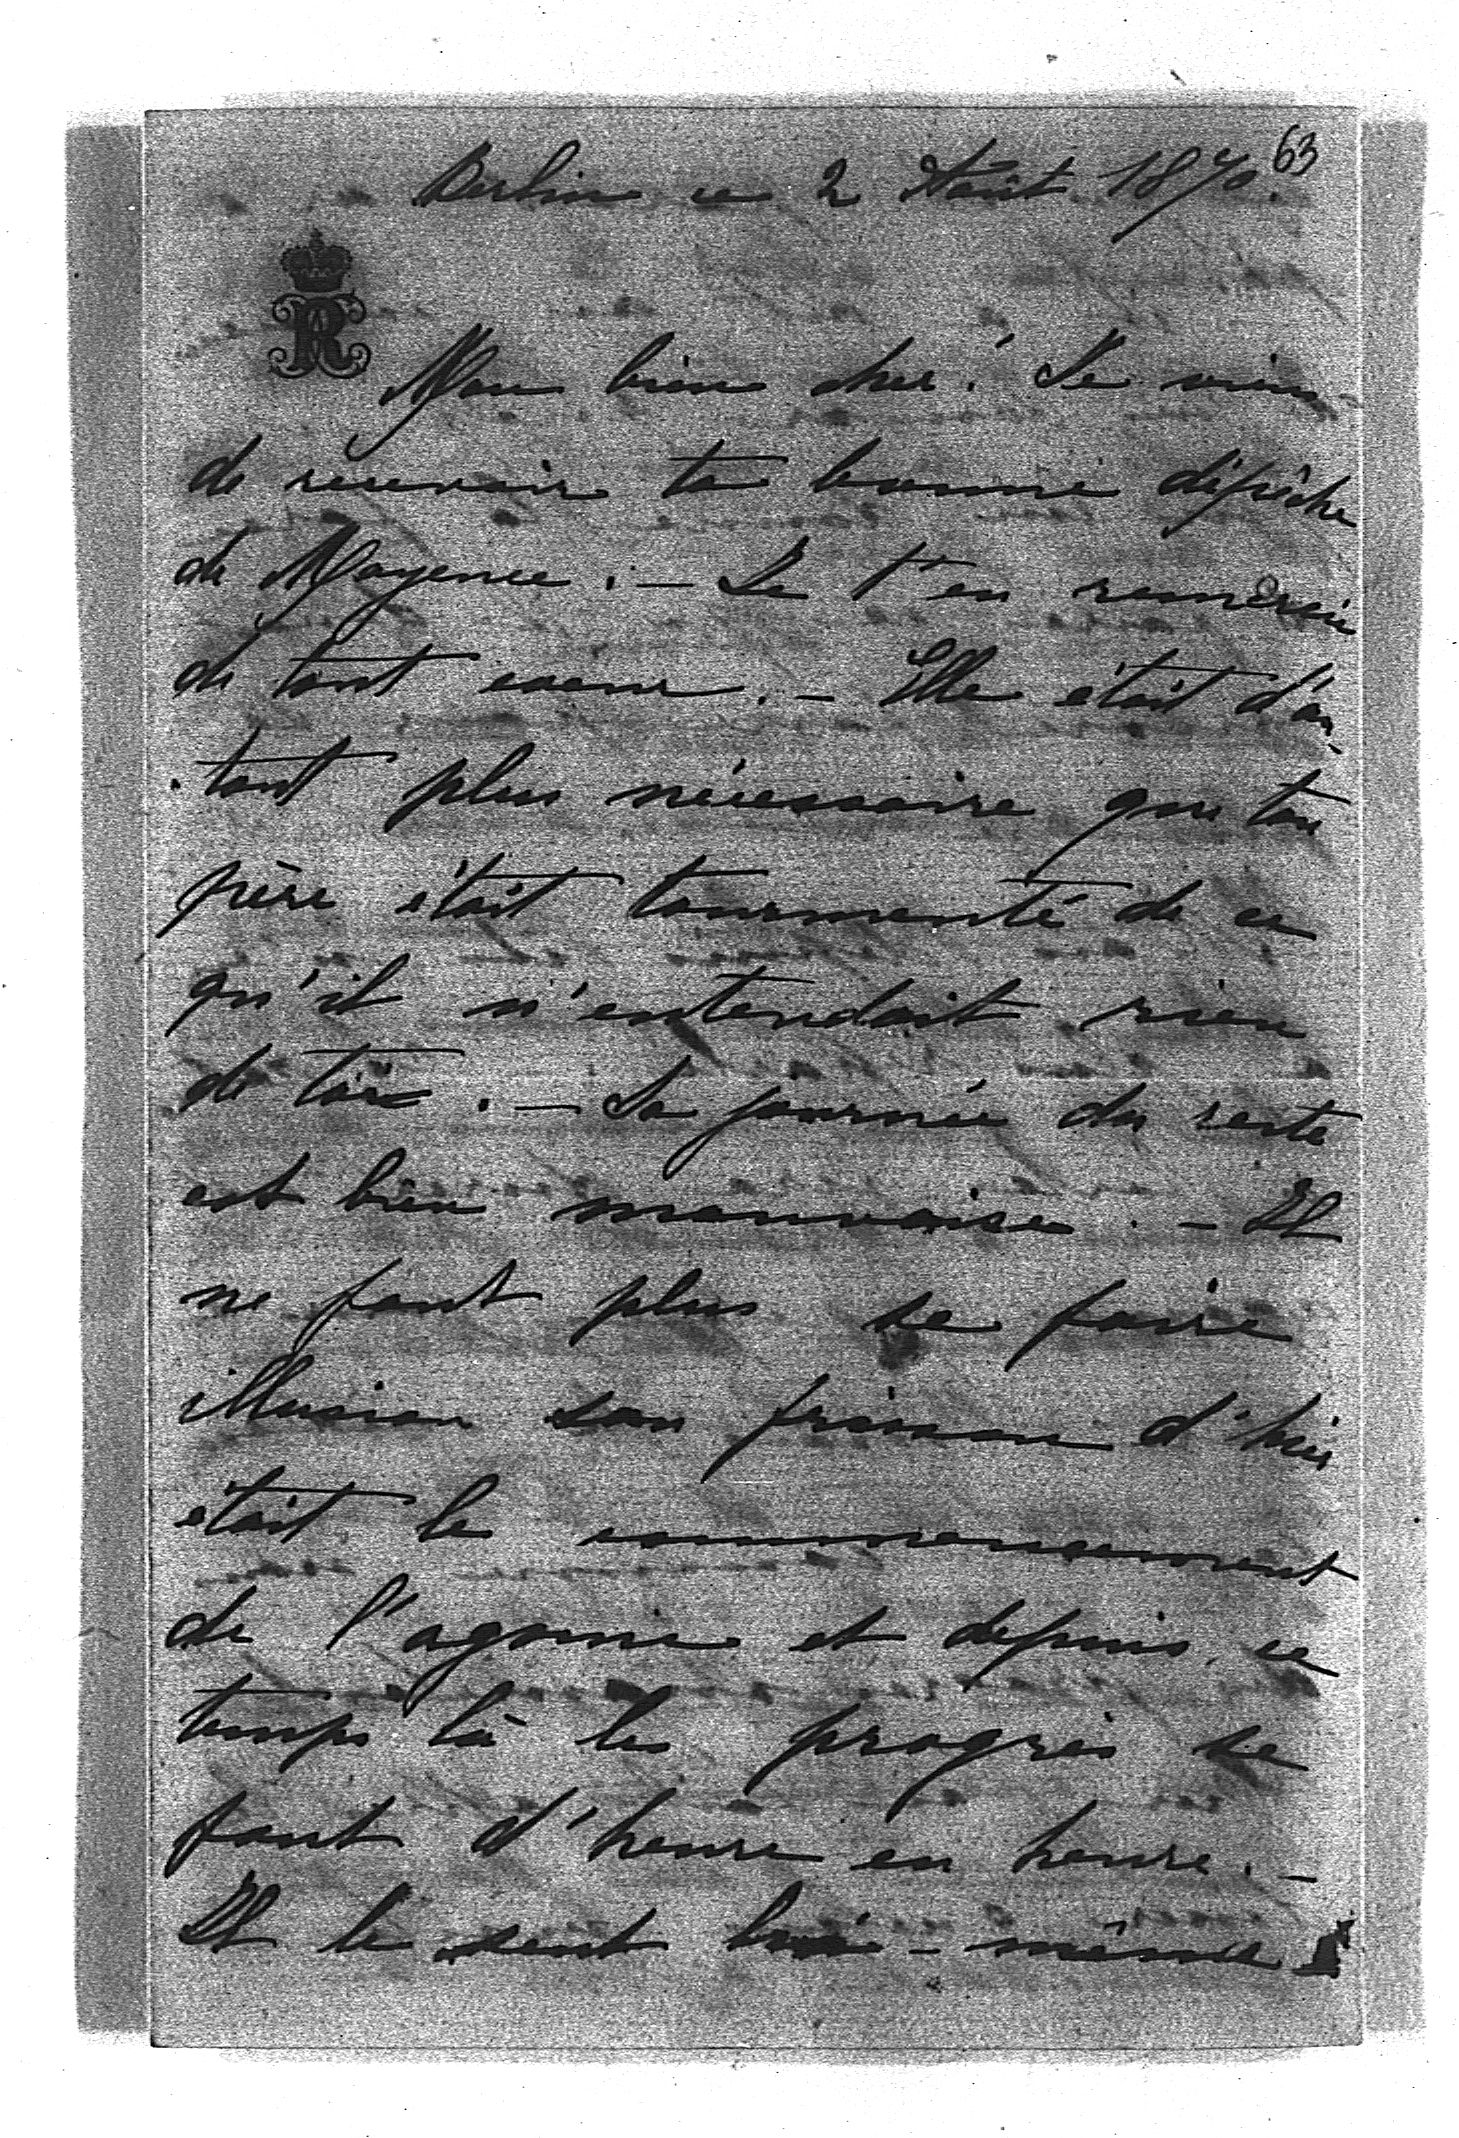 63
Berlin ce 2 Août 1870.
R
Mon bien cher! Je viens
de recevoir ta bonne dépêche
de Mayence. — Je t'en remercie
de tout coeur. — Elle était d'au-
tant plus nécessaire que ton
père était tourmenté de ce
qu'il n'entendait rien
de toi. — La journée du reste
est bien mauvaise. — Il
ne faut plus se faire
illusion son frisson d'hier
était le commencement
de l'agonie et depuis ce
temps là les progrès se
font d'heure en heure. —
Il le sent lui-même